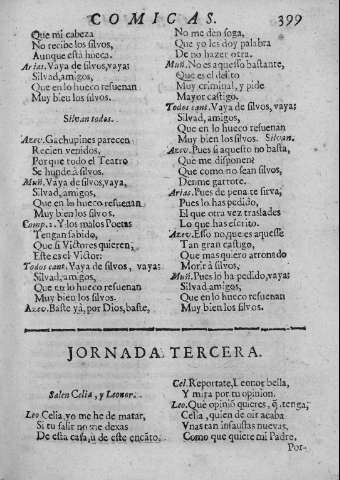 COMICAS. 399
Que mi cabeza
No recibe los silvos,
Aunque està hueca.
Arias. Vaya de silvos, vaya:
Silvad, amigos,
Que en lo hueco resuenan
Muy bien los silvos.
Silvan todos.
Azev. Gachupines parecen
Recien venidos,
Porque todo el Teatro
Se hunde à silvos.
Muñ. Vaya de silvos, vaya,
Silvad, amigos,
Que en lo hueco resuenan
Muy bien los silvos.
Comp. 2. Y los malos Poetas
Tengan sabido,
Que si Victores quieren,
Este es el Victor:
Todos cant. Vaya de silvos, vaya:
Silvad, amigos,
Que en lo hueco resuenan
Muy bien los silvos.
Azev. Baste yà, por Dios, baste,
No me den soga,
Que yo les doy palabra
De no hazer otra.
Muñ. No es aquesso bastante,
Que es el delito
Muy criminal, y pide
Mayor castigo.
Todos cant. Vaya de silvos, vaya:
Silvad, amigos,
Que en lo hueco resuenan
Muy bien los silvos. Silvan.
Azev. Pues si aquesto no basta,
Què me disponen?
Que como no sean silvos,
Denme garrote.
Arias. Pues de pena te sirva,
Pues lo has pedido,
El que otra vez traslades
Lo que has escrito.
Azev. Esso no, que es aquesse
Tan gran castigo,
Que mas quiero atronado
Morir à silvos.
Muñ. Pues lo ha pedido, vaya:
Silvad amigos,
Que en lo hueco resuenan
Muy bien los silvos.
JORNADA TERCERA.
Salen Celia, y Leonor.
Leo. Celia, yo me he de matar,
Si tu salir no me dexas
De esta casa, ù de este encãto.
Cel. Reportate, Leonor bella,
Y mira por tu opinion.
Leo. Què opiniõ quieres, q̃ tenga,
Celia, quien de oir acaba
Vnas tan infaustas nuevas,
Como que quiere mi Padre,
Por-